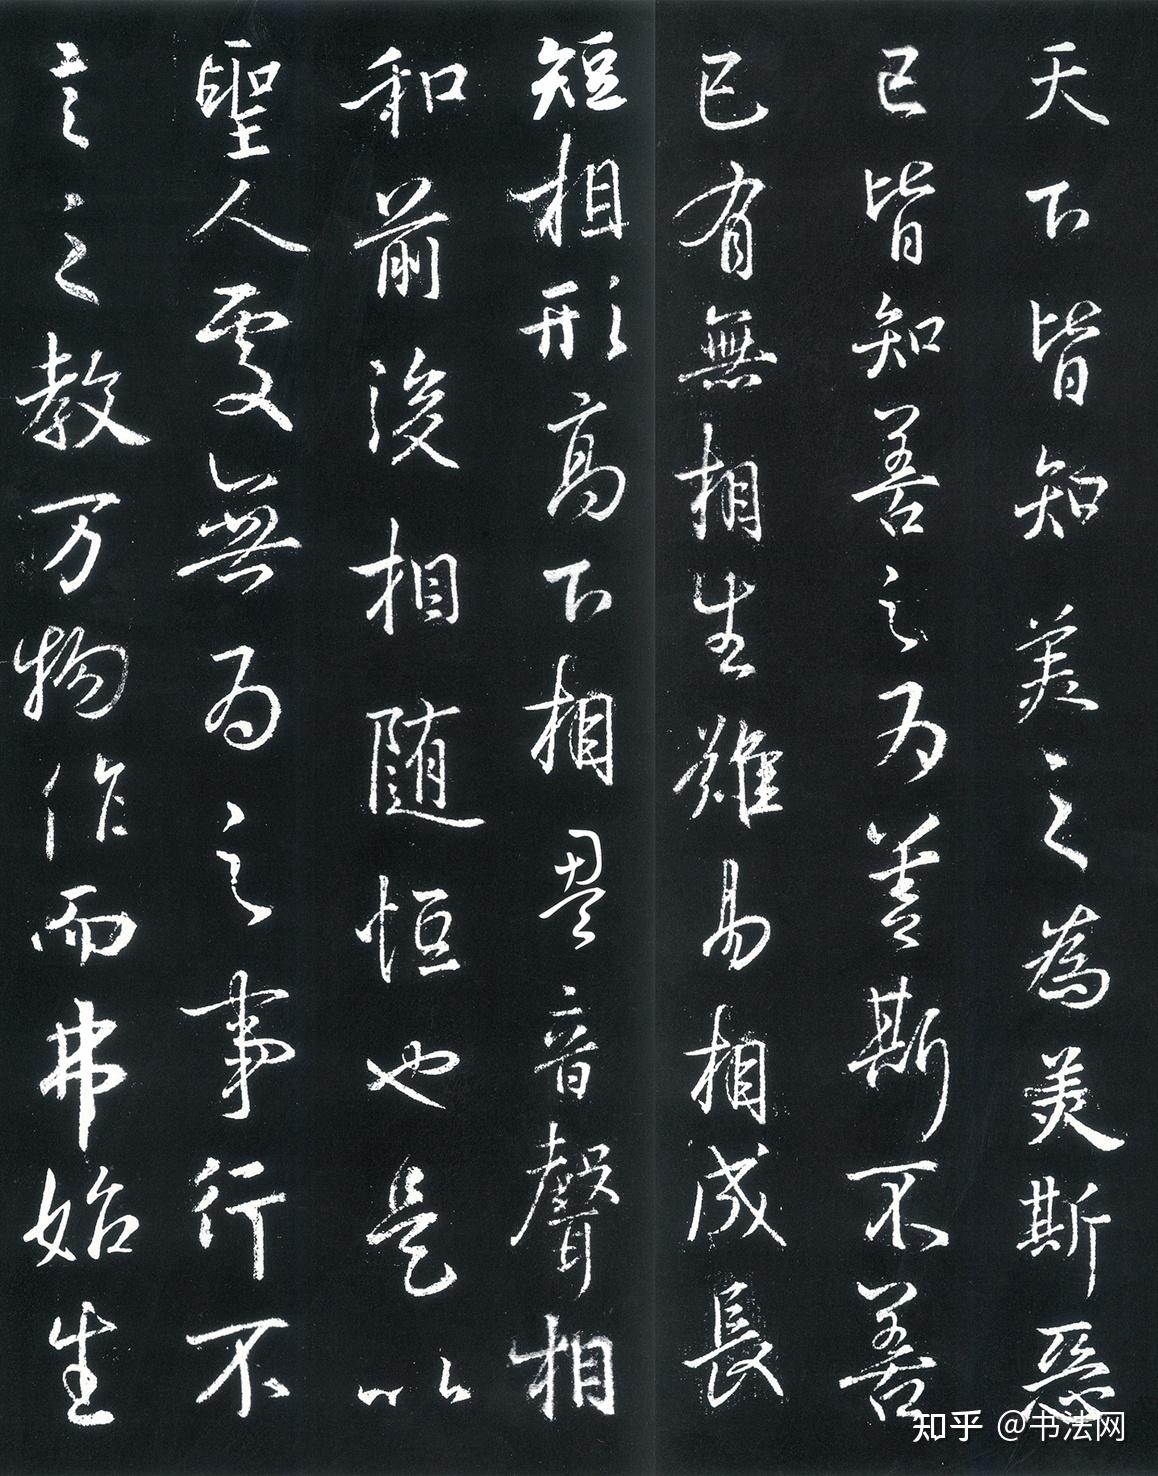 天下皆知美之為美斯惡
已皆知善之为善斯不善
已有無相生難易相成長
短相形高下相盈音聲相
和前後相随恒也是以
聖人處無为之事行不
言之教万物作而弗始生
知乎 @书法网